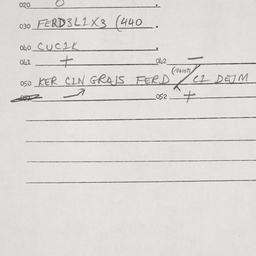 020
030 FERD3L1X3 (440 .
040 CUC1K .
041 + 042 —
050 KER C1N GRAJS FERD / C1 DEJM
052 +